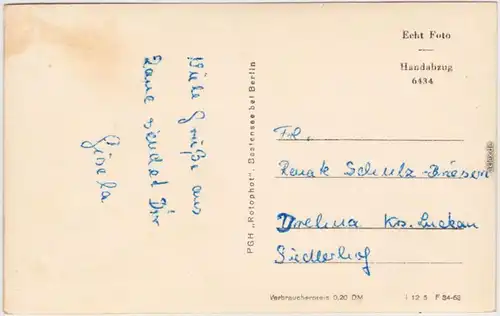 Viele Grüße aus
sendet Dir
Gisela
PGH „Rotophot“, Bestensee bei Berlin
Echt Foto
Handabzug
6434
Frl.
Renate Schulz-Briesen
Drehna Krs. Luckau
Siedlerhof
Verbraucherpreis 0,20 DM
I 12 5 F 34-62